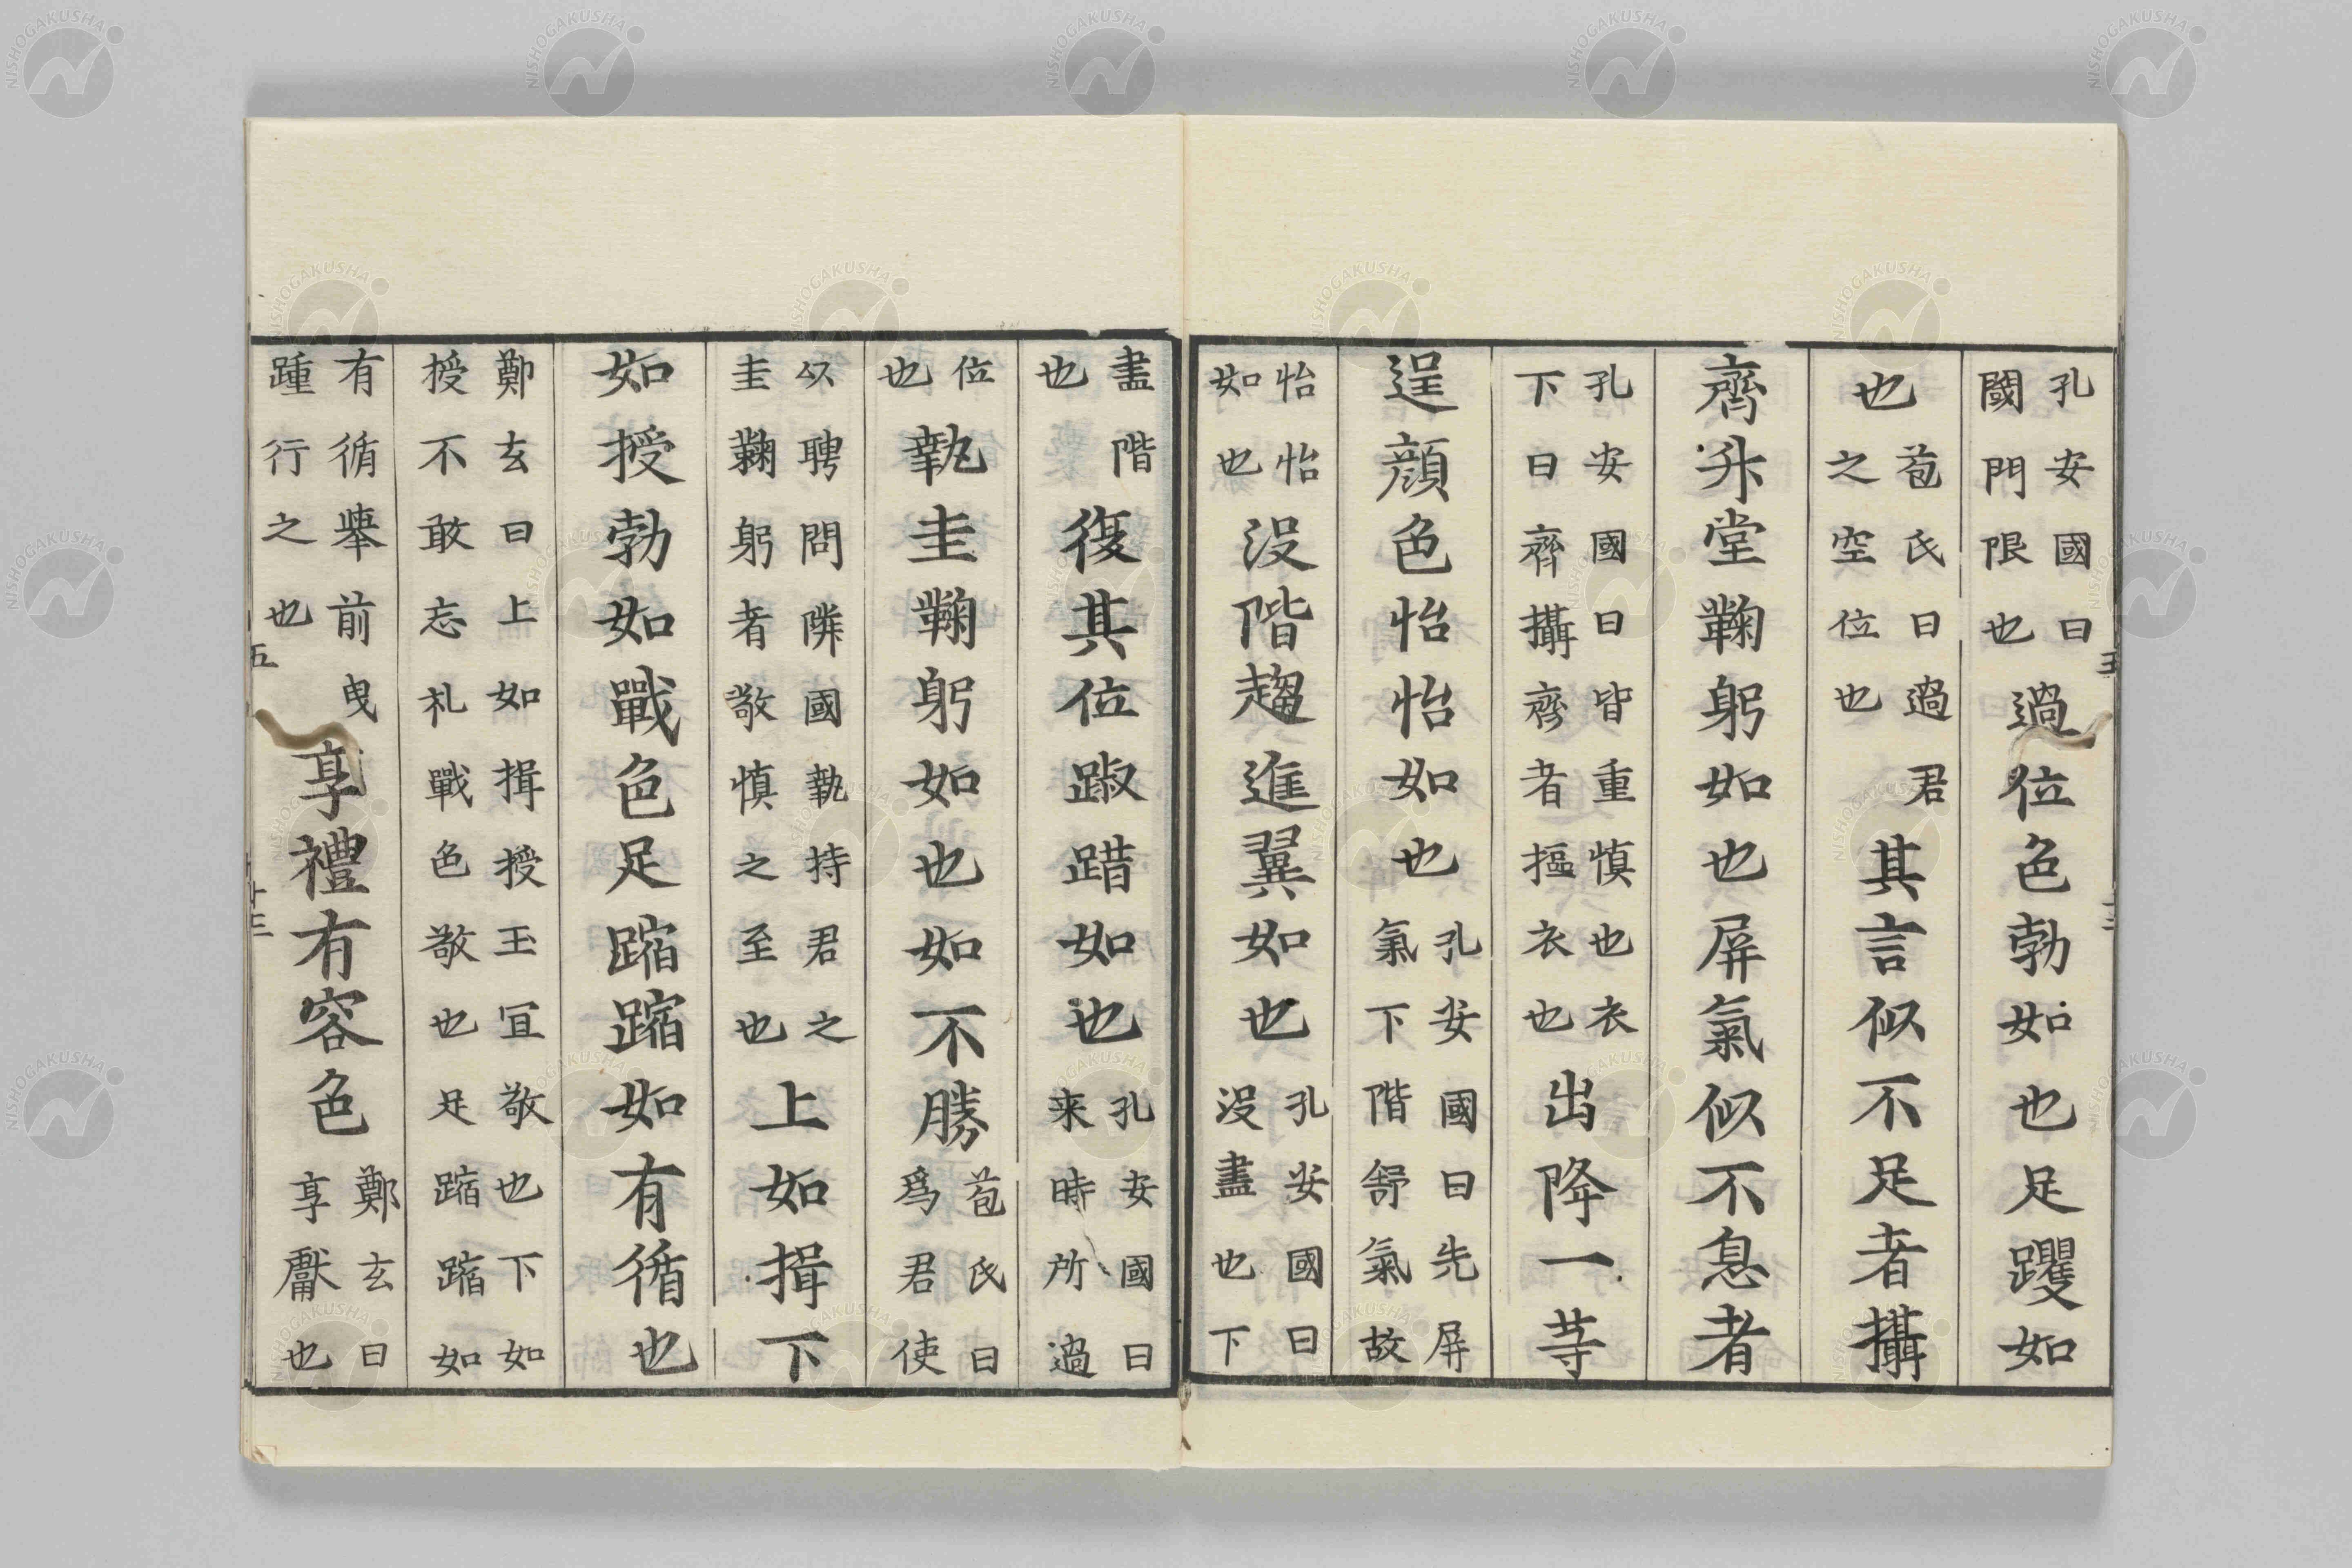 孔安國曰
閾門限也
過位色勃如也足躩如
也
苞氏曰過君
之空位也
其言似不足者攝
齊升堂鞠躬如也屏氣似不息者
孔安國曰皆重慎也衣
下曰齊攝齊者摳衣也
出降一等
逞顔色怡怡如也
孔安國曰先屏
氣下階舒氣故
怡怡
如也
没階趨進翼如也
孔安國曰
没盡也下
盡階
也
復其位踧踖如也
孔安國曰
来時所過
位
也
執圭鞠躬如也如不勝
苞氏曰
爲君使
以聘問隣國執持君之
圭鞠躬者敬慎之至也
上如揖下
如授勃如戰色足蹜蹜如有循也
鄭玄曰上如揖授玉冝敬也下如
授不敢忘礼戰色敬也足蹜蹜如
有循舉前曳
踵行之也
享禮有容色
鄭玄曰
享獻也
五
十三
NISHOGAKUSHA